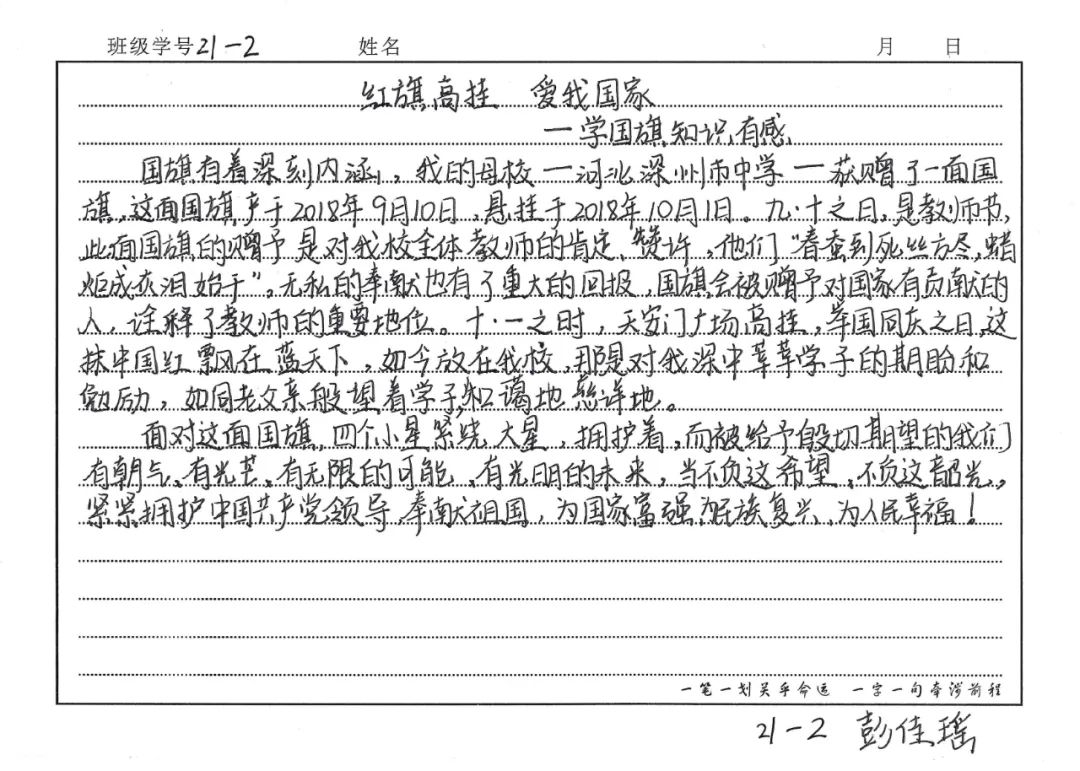 班级学号21-2 姓名 月 日
红旗高挂 爱我国家
—学国旗知识,有感
国旗有着深刻内涵,我的母校—河北深州市中学—获赠了一面国
旗,这面国旗产于2018年9月10日,悬挂于2018年10月1日。九·十之日,是教师节,
此面国旗的赠予是对我校全体教师的肯定、赞许,他们“春蚕到死丝方尽,蜡
炬成灰泪始干”,无私的奉献也有了重大的回报,国旗会被赠予对国家有贡献的
人,诠释了教师的重要地位。十·一之时,天安门广场高挂,举国同庆之日,这
抹中国红飘在蓝天下,如今放在我校,那是对我深中莘莘学子的期盼和
勉励,如同老父亲般望着学子,和蔼地慈详地。
面对这面国旗,四个小星紧绕大星,拥护着,而被给予殷切期望的我们
有朝气、有光芒、有无限的可能、有光明的未来,当不负这希望、不负这韶光,
紧紧拥护中国共产党领导,奉献祖国,为国家富强、为民族复兴、为人民幸福!
一笔一划关乎命运 一字一句牵涉前程
21-2 彭佳瑶